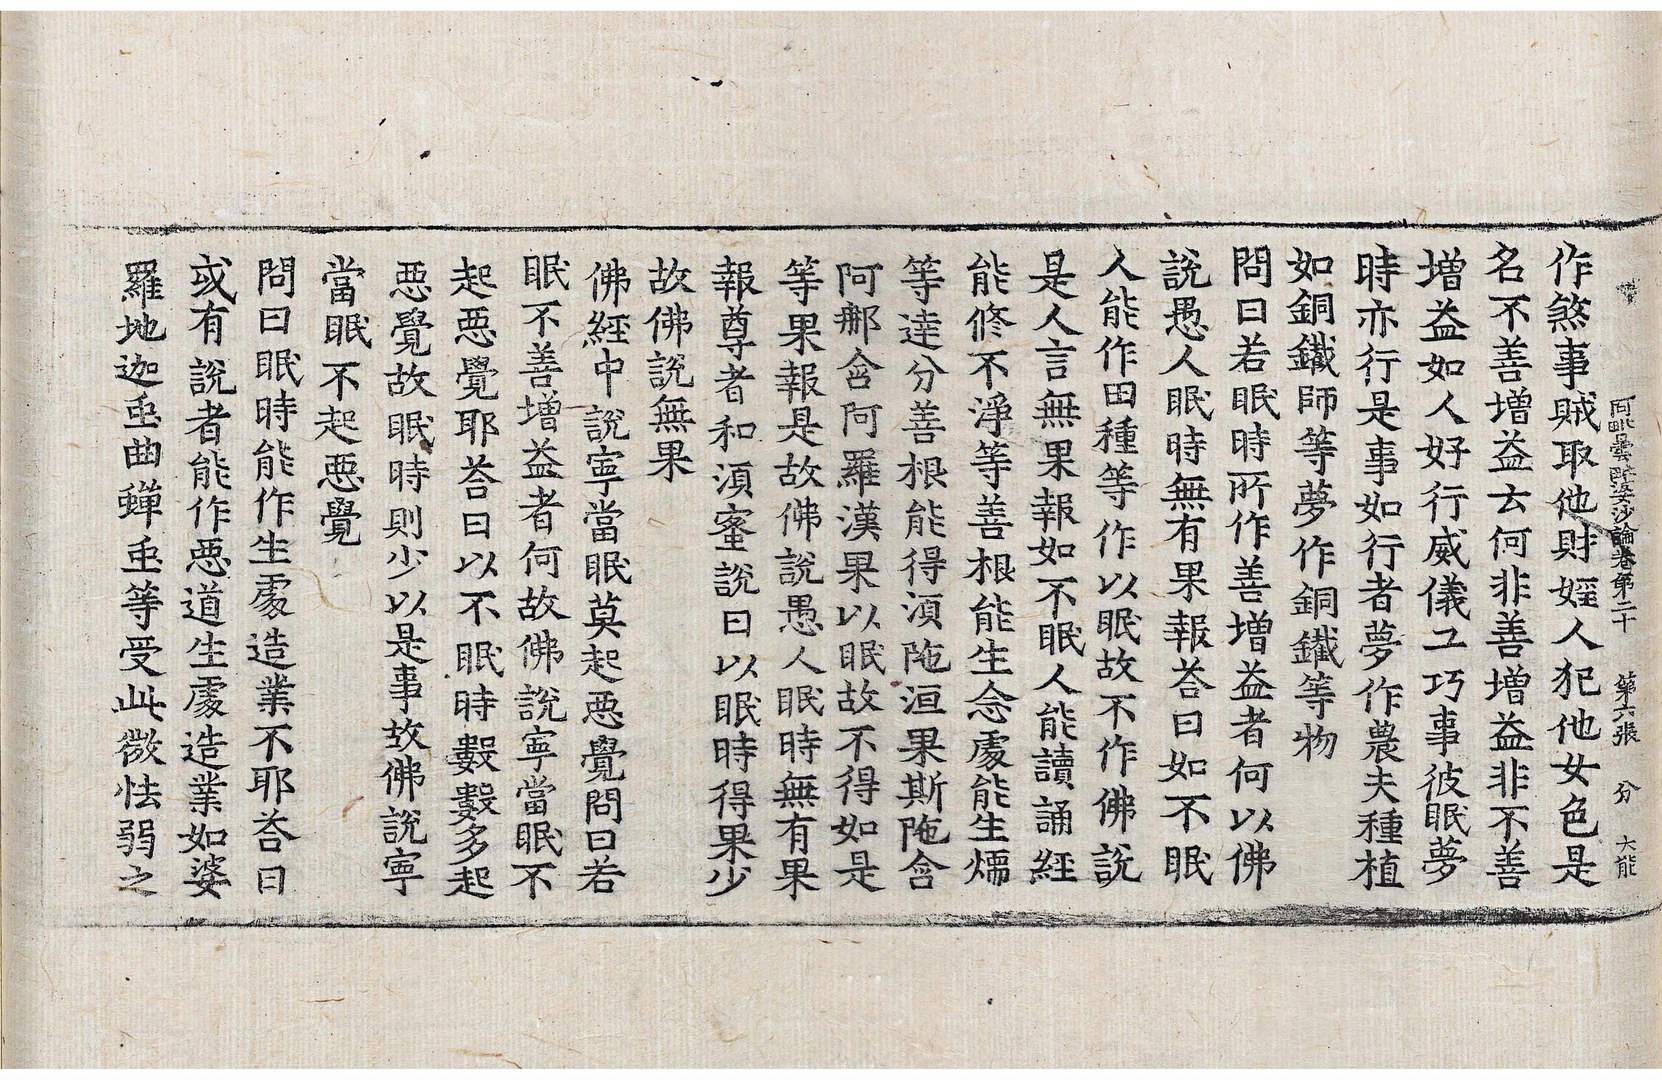 阿毗曇毗婆沙論卷第二十 第六張 分 大能
作煞事賊取他財婬人犯他女色是
名不善增益云何非善增益非不善
增益如人好行威儀工巧事彼眠夢
時亦行是事如行者夢作農夫種植
如銅鐵師等夢作銅鐵等物
問曰若眠時所作善增益者何以佛
說愚人眠時無有果報荅曰如不眠
人能作田種等作以眠故不作佛說
是人言無果報如不眠人能讀誦經
能修不淨等善根能生念處能生煗
等逹分善根能得湏陁洹果斯陁含
阿那含阿羅漢果以眠故不得如是
等果報是故佛說愚人眠時無有果
報尊者和湏蜜說曰以眠時得果少
故佛說無果
佛經中說寧當眠莫起惡覺問曰若
眠不善增益者何故佛說寧當眠不
起惡覺耶荅曰以不眠時數數多起
惡覺故眠時則少以是事故佛說寧
當眠不起惡覺
問曰眠時能作生處造業不耶荅曰
或有說者能作惡道生處造業如婆
羅地迦䖝曲蟬䖝等受此微怯弱之